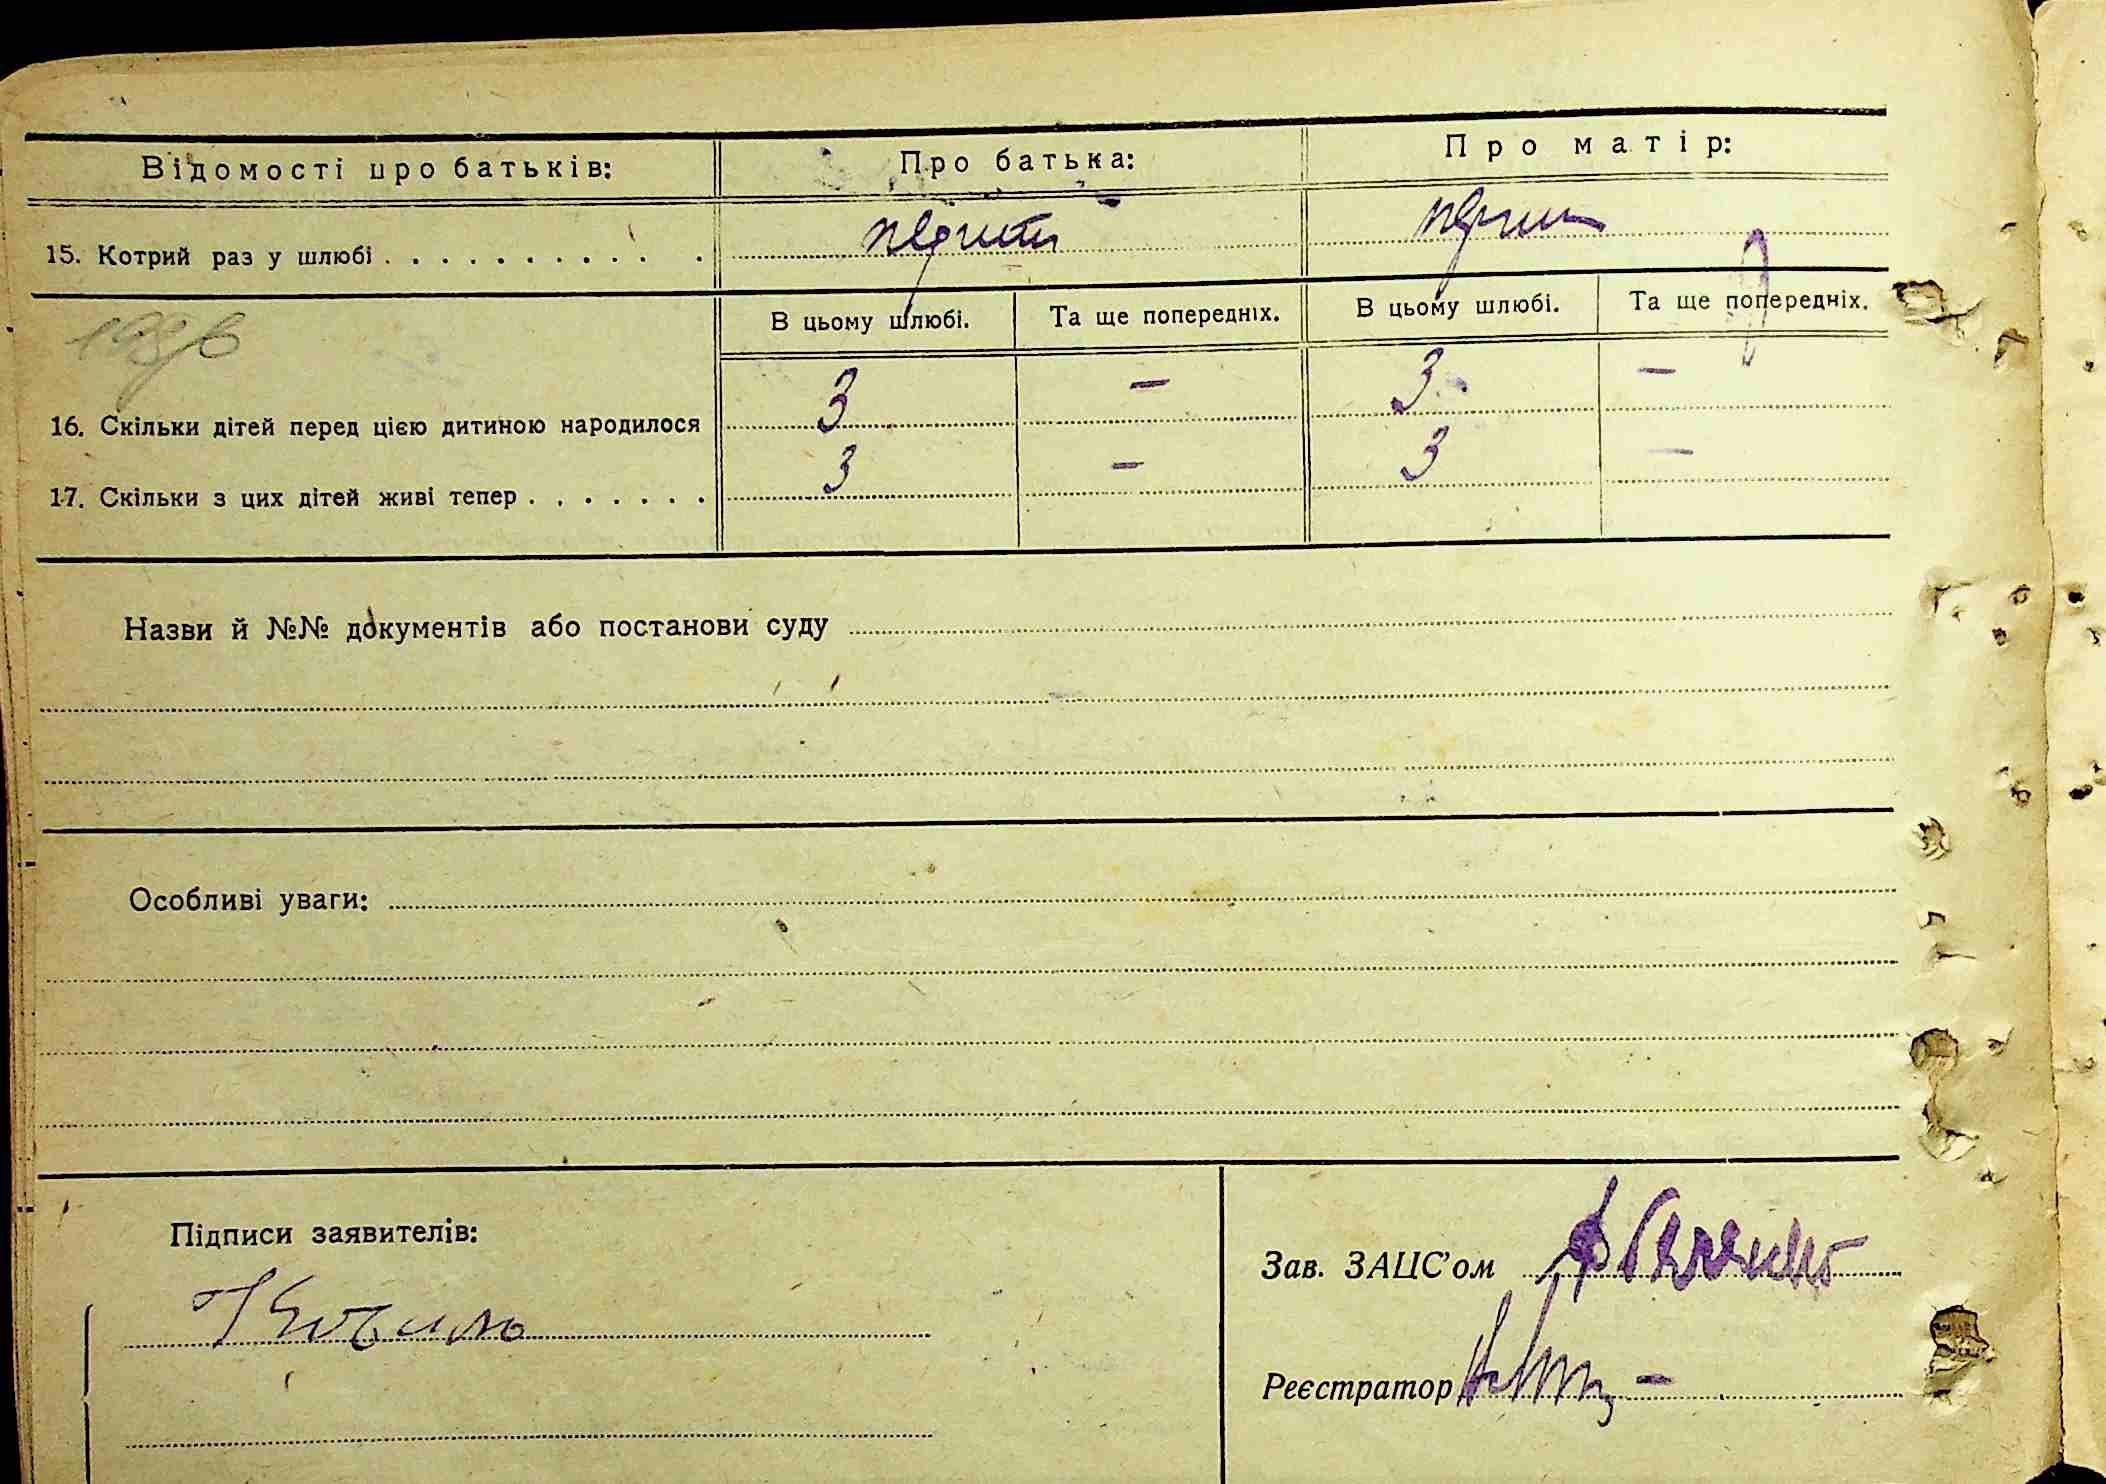 Відомості про батьків: Про батька: Про матір:
15. Котрий раз у шлюбі перший перший
В цьому шлюбі. Та ще попередніх. В цьому шлюбі. Та ще попередніх.
16. Скільки дітей перед цією дитиною народилося 3 – 3 –
17. Скільки з цих дітей живі тепер 3 – 3 –
Назви й №№ документів або постанови суду
Особливі уваги:
Підписи заявителів:
Зав. ЗАЦС'ом
Реєстратор